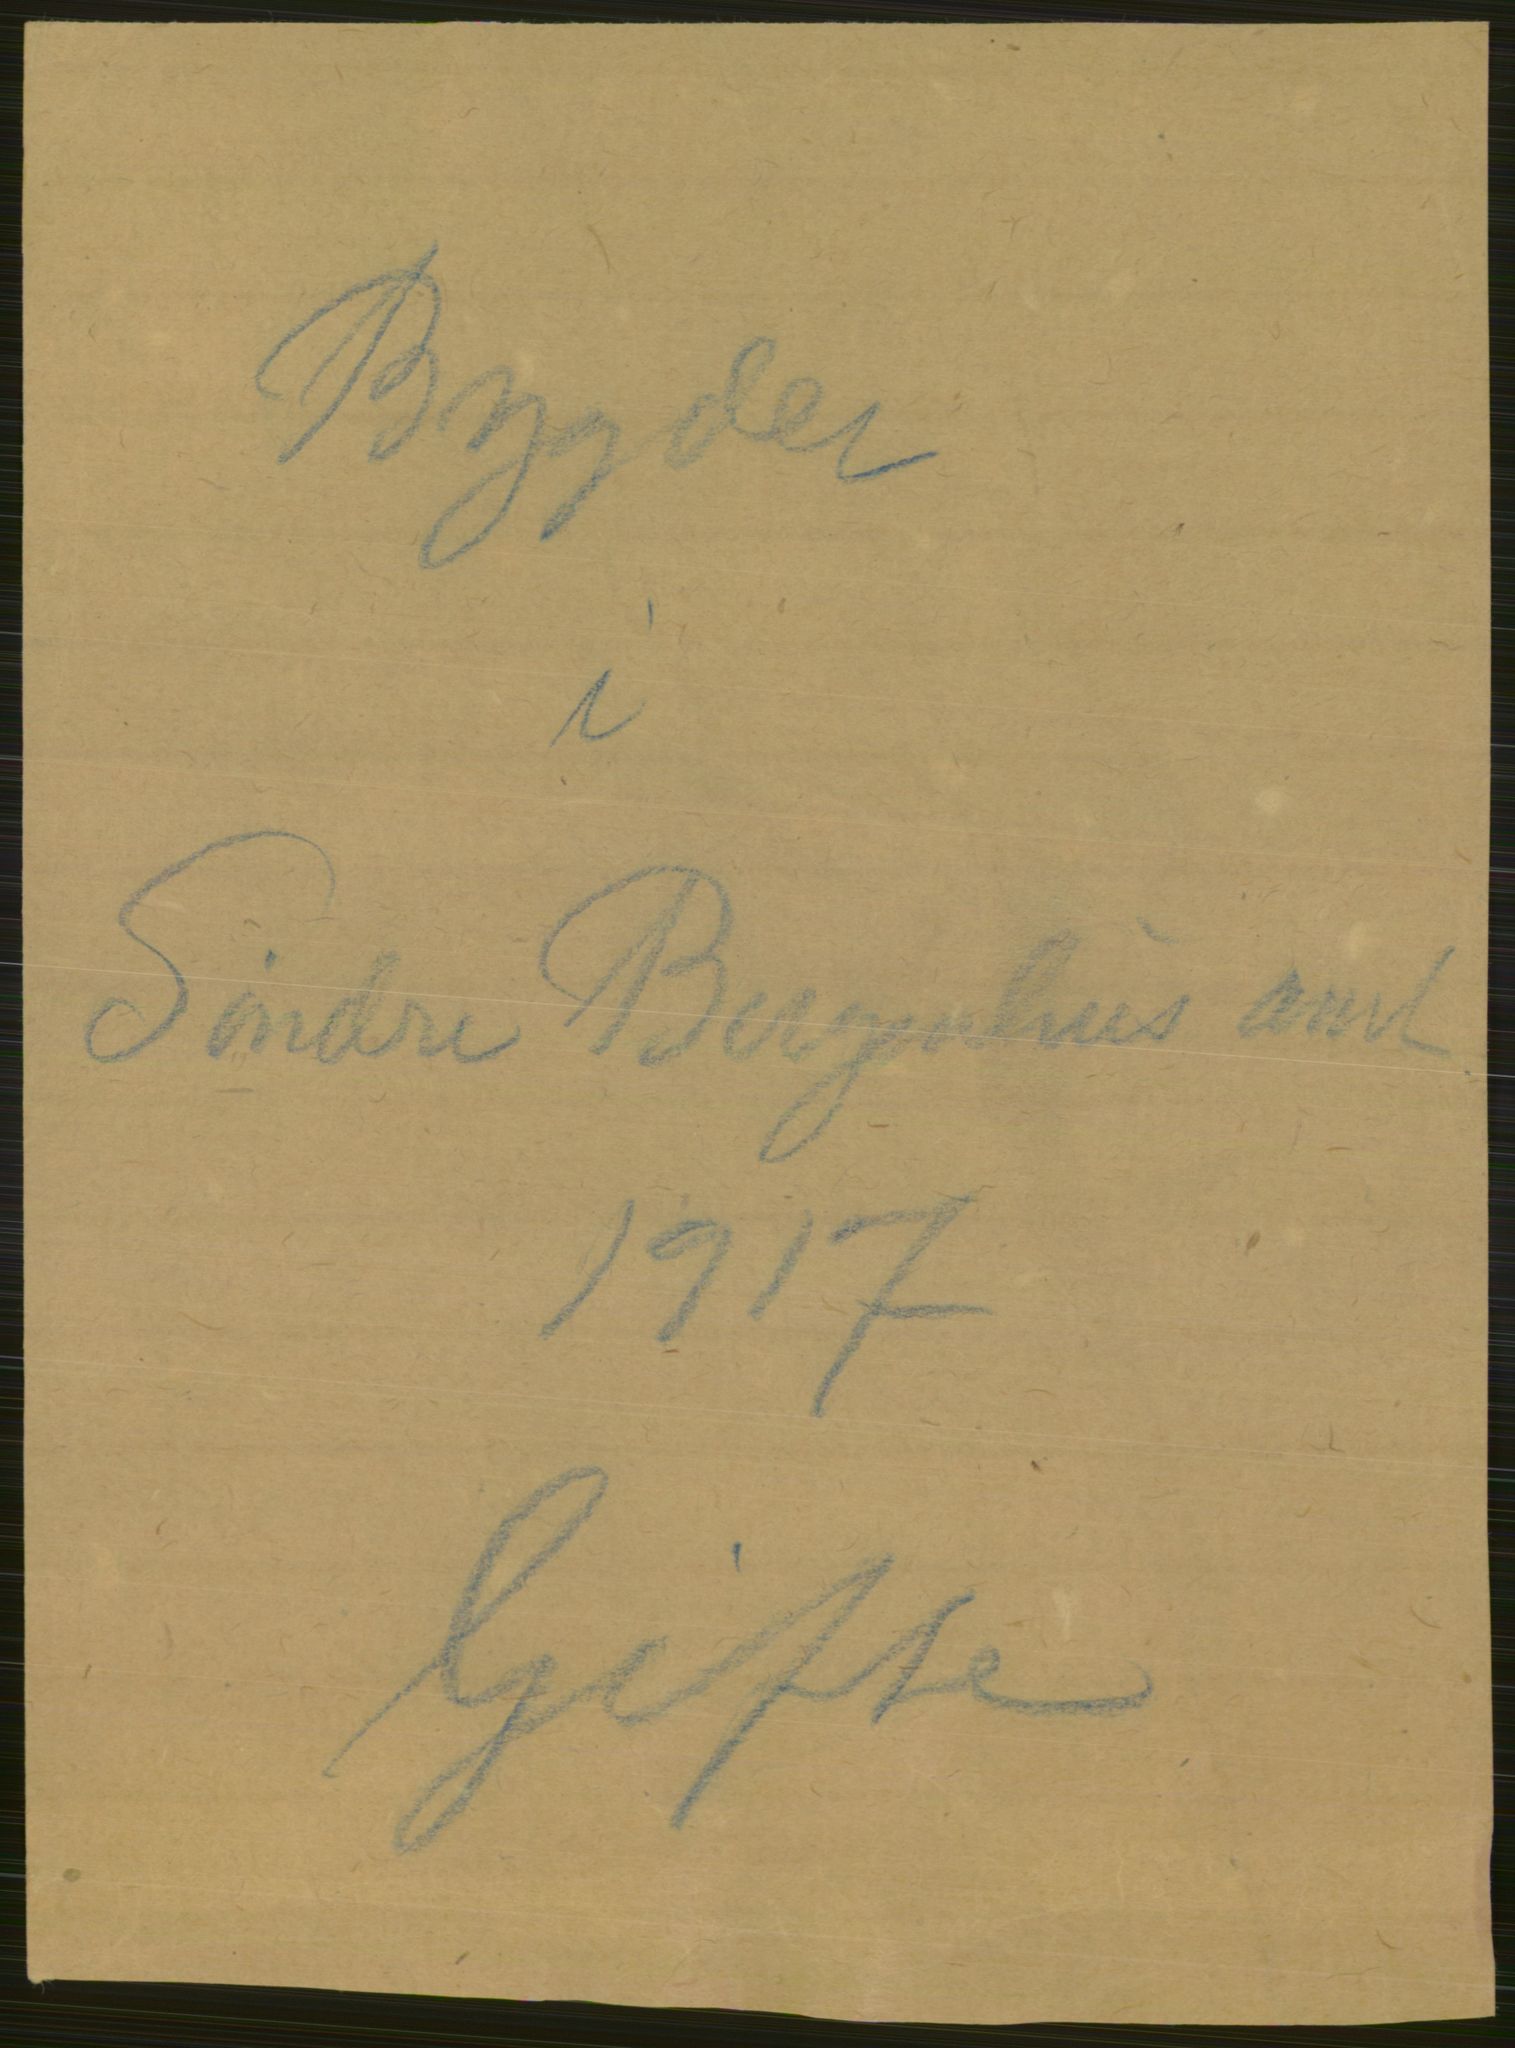 Bygder
i
Söndre Bergenhus amt
1917
Gifte